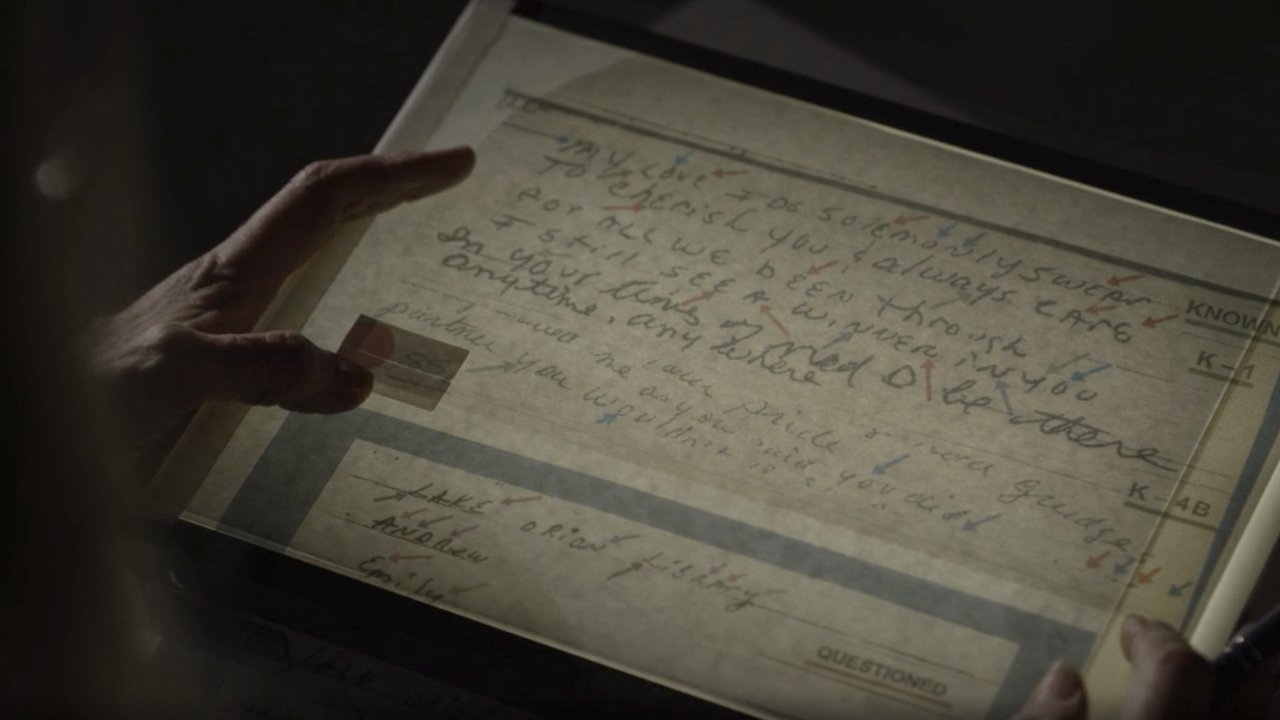 MY LOVE I DO SOLEMONLY SWEAR
TO CHERISH YOU & always CARE
FOR ALL WE BEEN through
I still SEE A WINNER IN YOU
In your time of need I'll be there
anytime, anywhere
me as you said you did
partner you wouldn't
LAKE ORION Library
ANDREW
Emily
KNOWN
K-1
K-4B
QUESTIONED